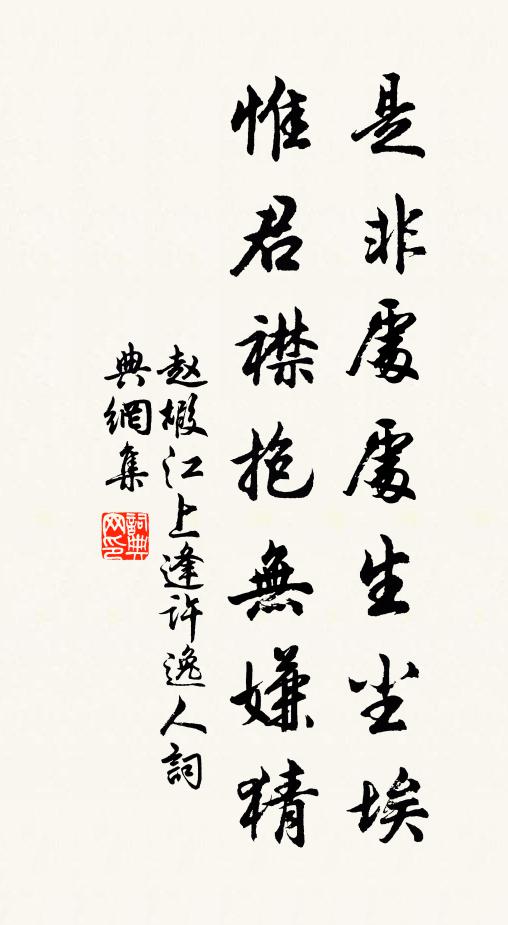 是非處處生尘埃
惟君襟抱無嫌猜
赵椵江上逢许逸人詞
典網集
詞典
网印